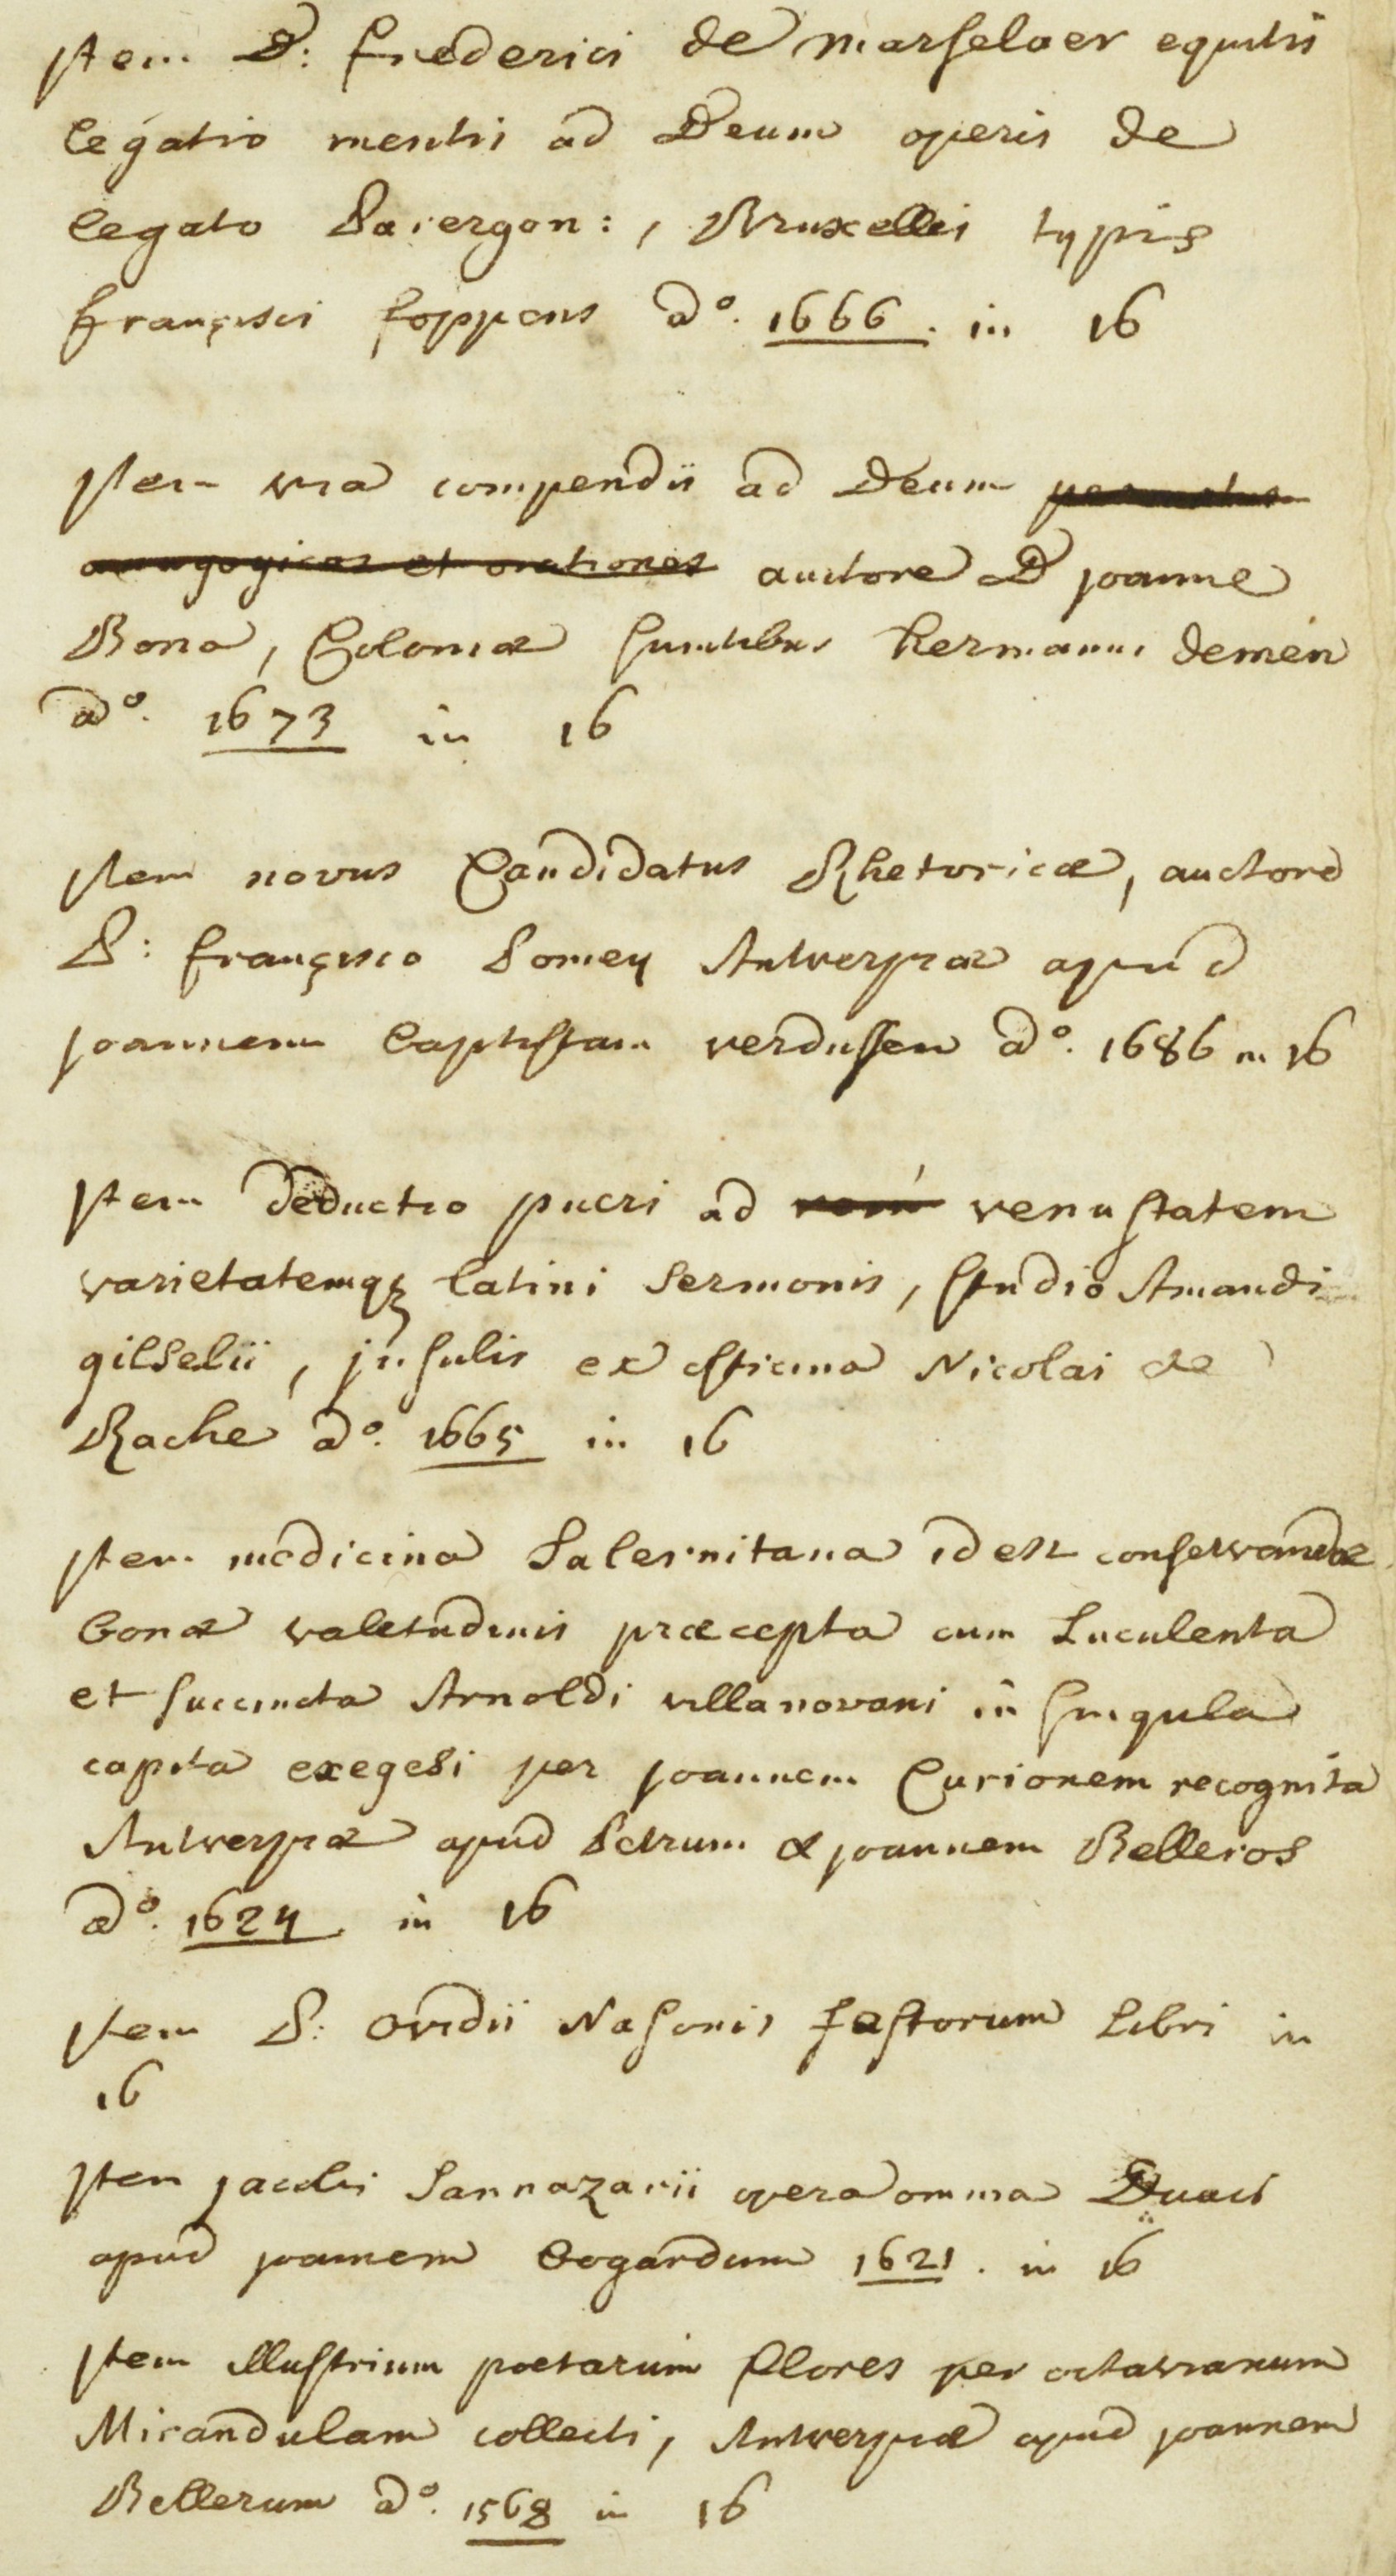 Item D: frederici de marselaer equitis
legatio mentis ad Deum operis de
legato Parergon:, Bruxellis typis
francisci foppens a°. 1666. in 16
Item via compendii ad Deum per motus
anagogicos et orationes auctore D joanne
Bona, Coloniæ sumtibus hermanni demen
a°. 1673 in 16
Item novus Candidatus Rhetoricæ, auctore
P: francisco Pomey Antverpiæ apud
joannem baptistam verdussen a°. 1686 in 16
Item deductio pueri ad venustatem
varietatemq3 latini sermonis, studio Amandi
gilselii, jnsulis ex officina Nicolai de
Rache a°. 1665 in 16
Item medicina Salernitana id est conservandæ
bonæ valetudinis præcepta cum Luculenta
et succincta Arnoldi villanovani in singula
capita exegesi per joannem Curionem recognita
Antverpiæ apud Petrum & joannem Belleros
a°. 1624 in 16
Item P: Ovidii Nasonis fastorum Libri in
16
Item jacobi Sannazarii opera omnia Duaci
apud joannem bogardum 1621. in 16
Item illustrium poetarum flores per octavianum
Mirandulam collecti, Antverpiæ apud joannem
Bellerum a°. 1568 in 16